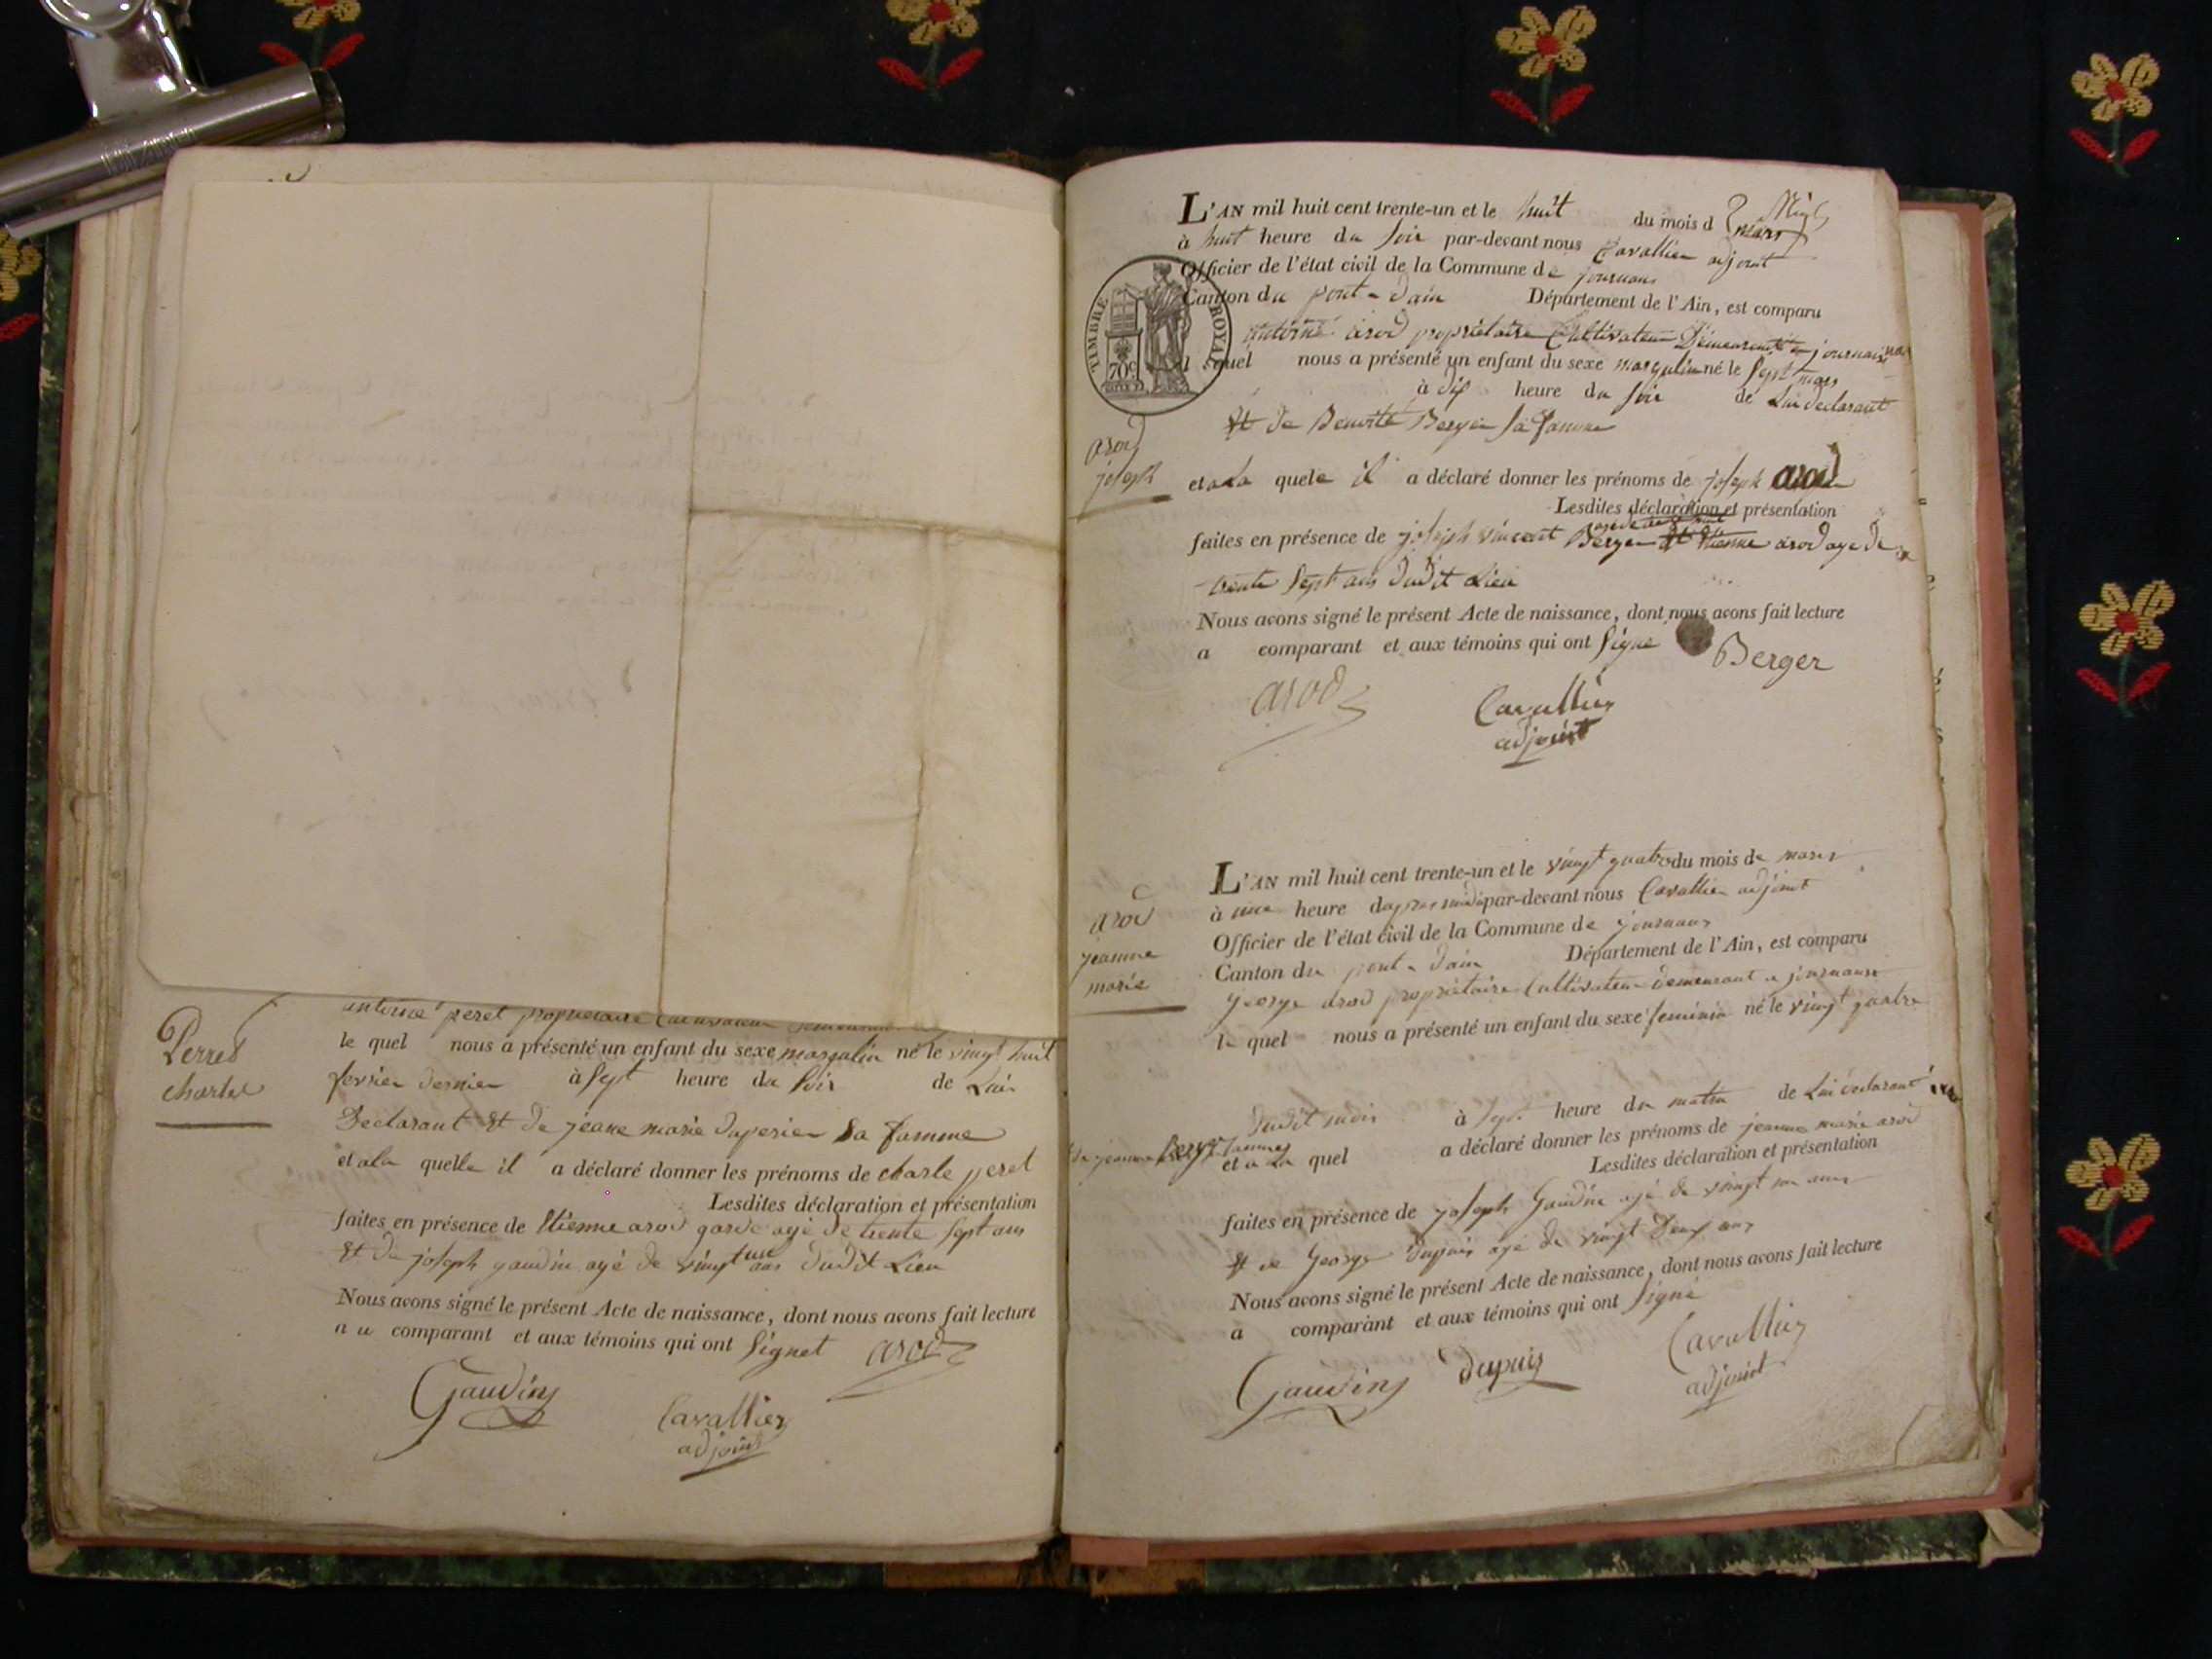 Perret
charle
antoine peret propriétaire
le quel nous a présenté un enfant du sexe masqulin né le vingt huit
fevrier dernier à sept heure du soir de Lui
Declarant et de jeane marie duperier sa famme
et ala quelle il a déclaré donner les prénoms de charle peret
Lesdites déclaration et présentation
faites en présence de Etienne arod garde agé de trente sept ans
et de joseph gaudin agé de vingt un ans dudit Lieu
Nous avons signé le présent Acte de naissance, dont nous avons fait lecture
a u comparant et aux témoins qui ont signet arod
Gaudin
Cavallier
adjoint
L'AN mil huit cent trente-un et le huit du mois d mars
à huit heure du soir par-devant nous Cavallier adjoint
Officier de l'état civil de la Commune de journans
Canton du pont-dain Département de l'Ain, est comparu
TIMBRE ROYAL
70c
antoine arod propriétaire Cultivateur Demeurant a journans
l quel nous a présenté un enfant du sexe masqulin né le sept mars
à dix heure du soir de Lui declarant
et de Benoite Berger sa famme
arod
joseph
et a La quele il a déclaré donner les prénoms de joseph arod
Lesdites déclaration et présentation
faites en présence de joseph vincent Berger et Etienne arod age de
trente sept ans dudit Lieu
Nous avons signé le présent Acte de naissance, dont nous avons fait lecture
a comparant et aux témoins qui ont signe
Berger
arod
Cavallier
adjoint
arod
jeanne
marie
L'AN mil huit cent trente-un et le vingt quatre du mois de mars
à une heure dapres midi par-devant nous Cavallier adjoint
Officier de l'état civil de la Commune de journans
Canton du pont-dain Département de l'Ain, est comparu
george arod propriétaire Cultivateur demeurant a journans
le quel nous a présenté un enfant du sexe feminin né le vingt quatre
dudit mois à sept heure du matin de Lui declarant
de jeanne Berger
et a La quel a déclaré donner les prénoms de jeanne marie arod
Lesdites déclaration et présentation
faites en présence de joseph Gaudin agé de vingt un ans
et de George dupuis agé de vingt Deux ans
Nous avons signé le présent Acte de naissance, dont nous avons fait lecture
a comparant et aux témoins qui ont signé
Gaudin dupuis Cavallier
adjoint